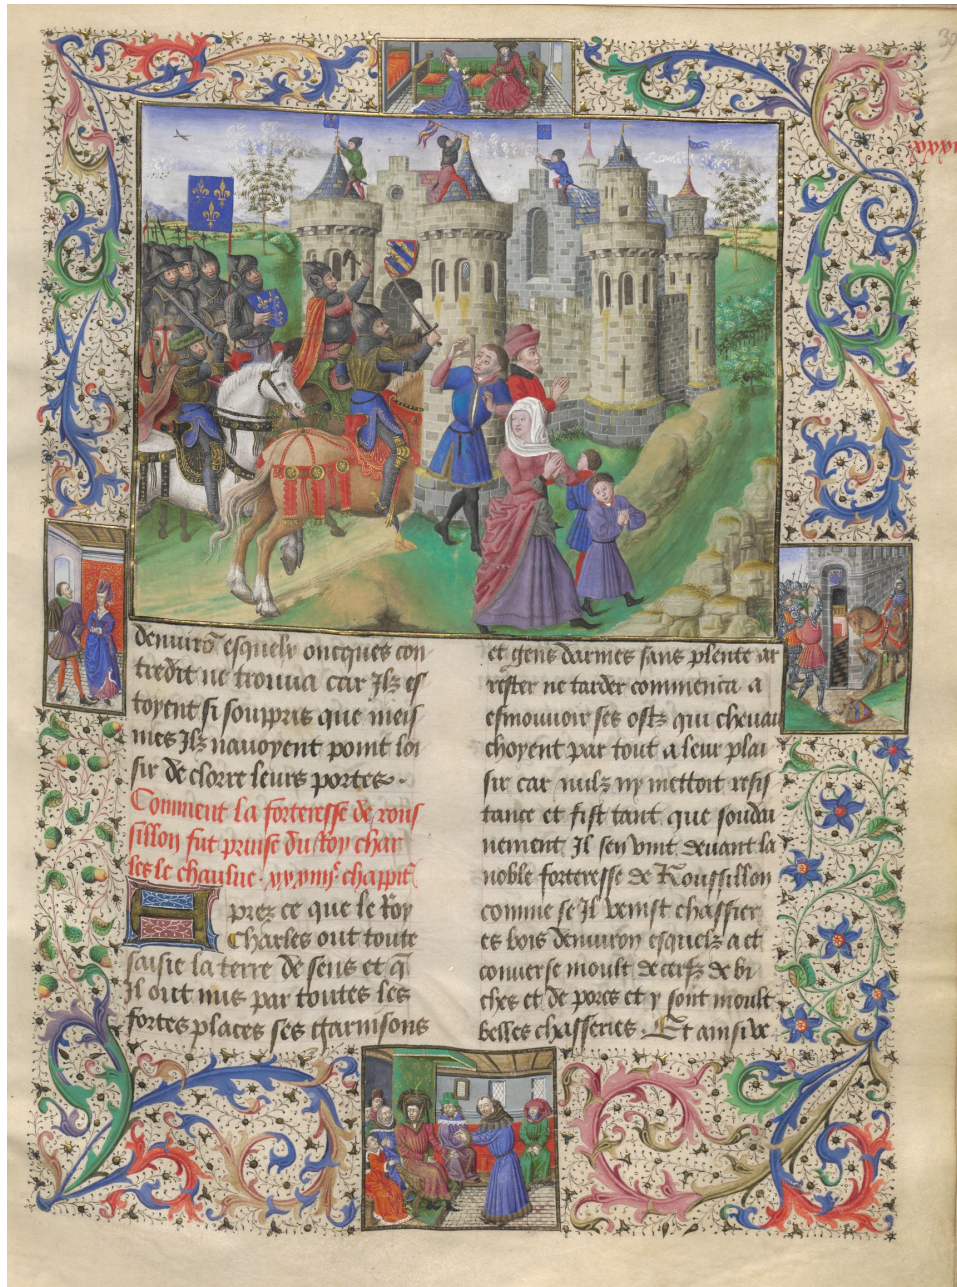 39
xxxiiii
denviro͂ esquelz oncques con
tredit ne trouva car Ilz es
toyent si soupris que meis
mes Ilz navoyent point loi
sir de clorre leurs portes.
Comment la forteresse de rous
sillon fut prinse du Roy char
les le chaulue. xxxiiii.e chappitr̃
Aprez ce que le Roy
Charles out toute
saisie la terre de sens et q̃
Il out mis par toutes les
fortes places ses garnisons
et gens darmes sans plente ar
rester ne tarder commenca a
esmouvoir ses ostz qui chevau
choyent par tout a leur plai
sir car nulz ny mettoit resis
tance et fist tant que soudai
nement Il sen vint devant la
noble forteresse de Roussillon
comme se Il venist chassier
es bois denviron esquelz a et
converse moult de cerfz de bi
ches et de porcs et y sont moult
belles chasseries. Et ainsi ve